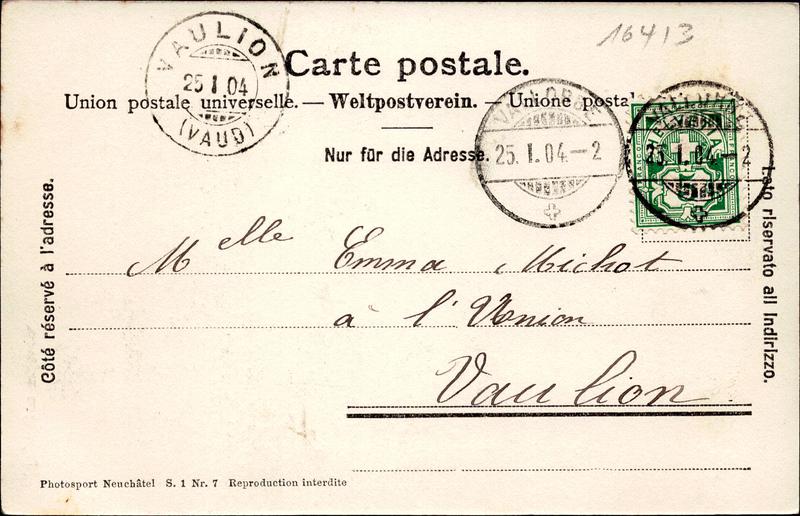 16413
VAULION
25 I 04
(VAUD)
Carte postale.
Union postale universelle. — Weltpostverein. — Unione postal
Nur für die Adresse.
VALLORBE
25. I. 04. — 2
VALLORBE
25. I. 04. — 2
HELVETIA
FRANCO
Côté réservé à l'adresse.
Lato riservato all indirizzo.
Melle Emma Michot
à l'Union
Vaulion.
Photosport Neuchâtel S. 1 Nr. 7 Reproduction interdite